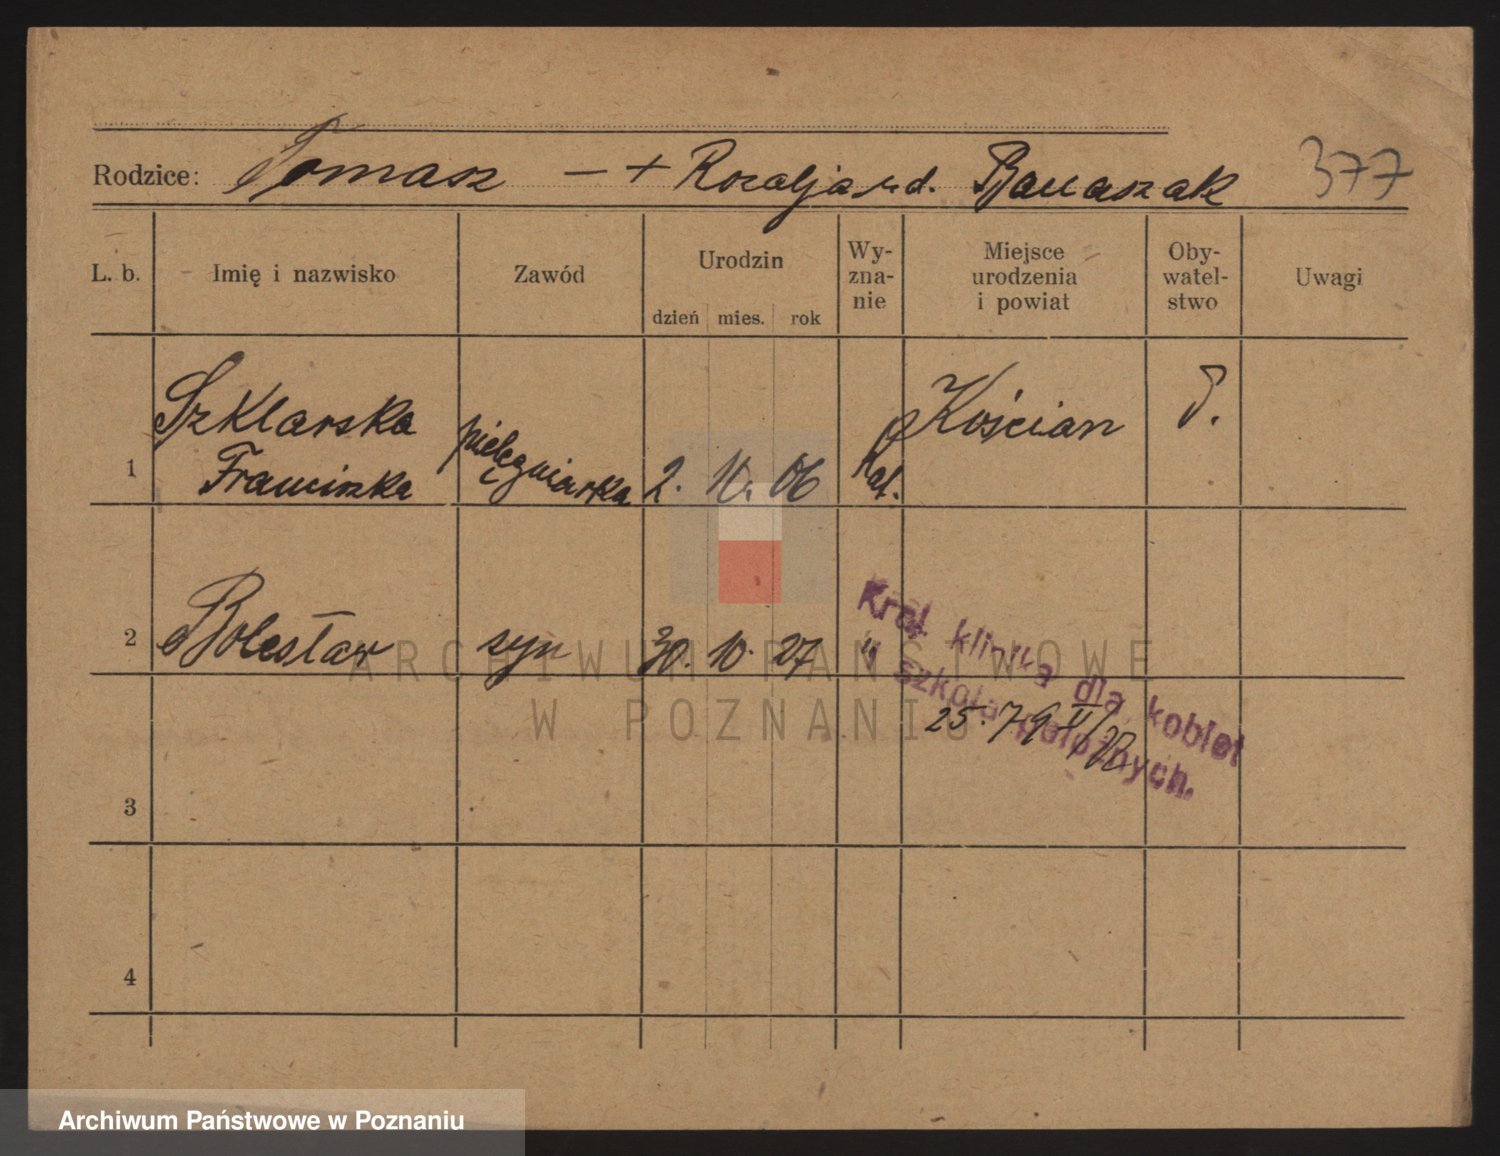 Rodzice: Tomasz – + Rozalja ur d. Banaszak 377
L. b. Imię i nazwisko Zawód Urodzin dzień mies. rok Wy-zna-nie Miejsce urodzenia i powiat Oby-watel-stwo Uwagi
1 Szklarska Franciszka pielęgniarka 2. 10. 06 Kat. Kościan P.
2 Bolesław syn 30. 10. 27 "
Kraj. klinika dla kobiet
i szkoła położnych.
25. 79
3
4
ARCHIWUM PAŃSTWOWE
W POZNANIU
Archiwum Państwowe w Poznaniu